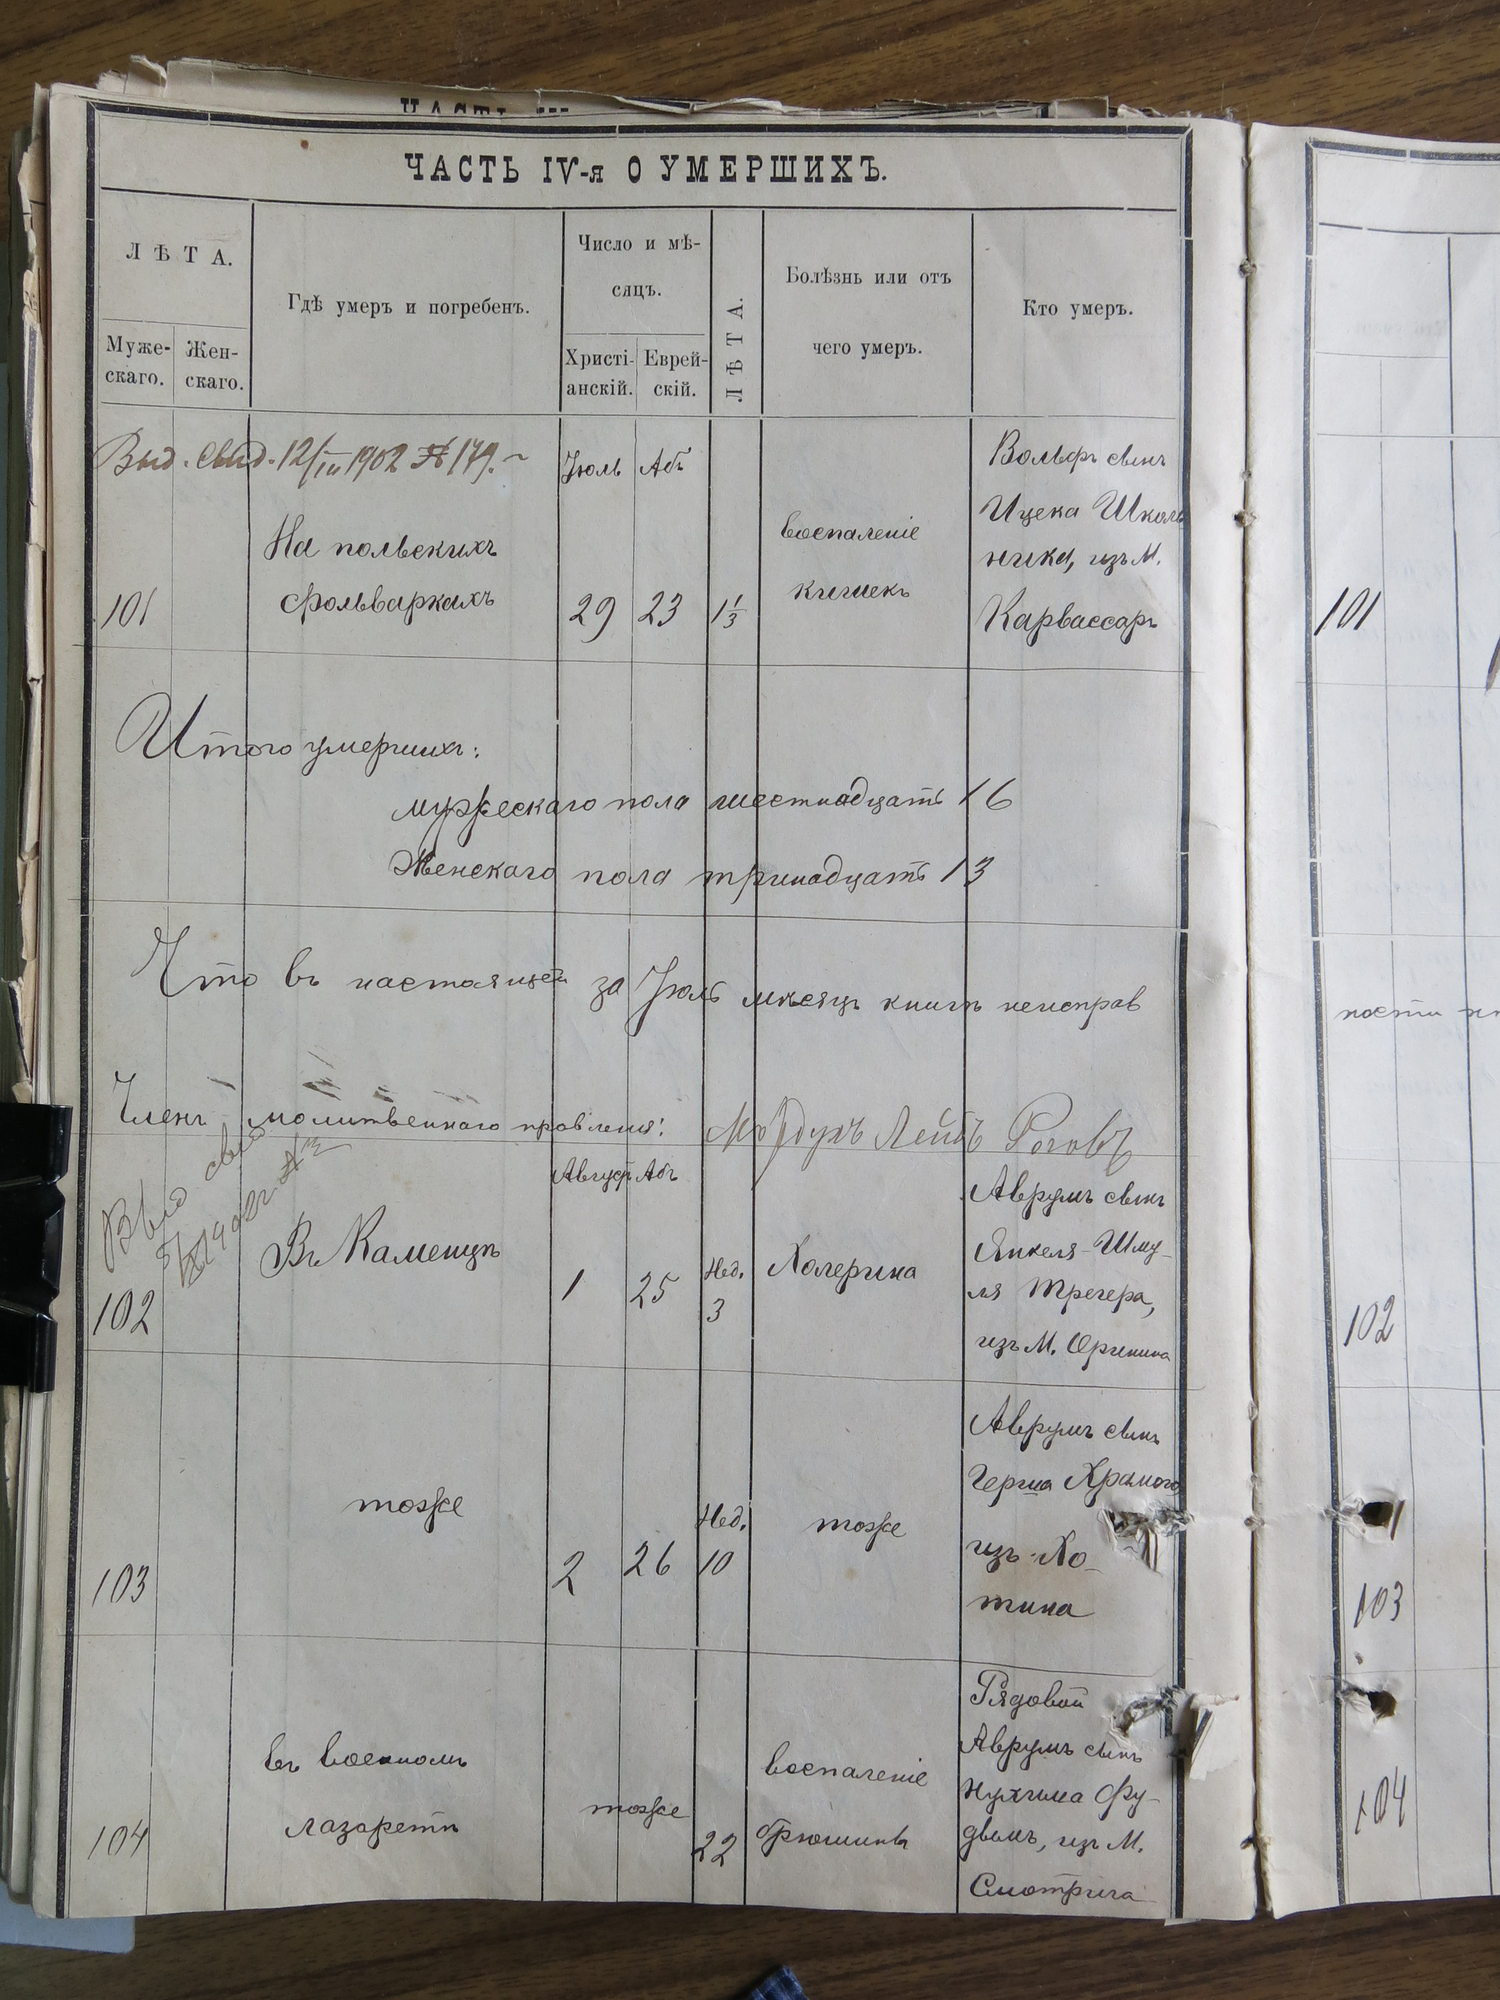 ЧАСТЬ IV-я О УМЕРШИХЪ.
ЛѢТА.
Муже-
скаго.
Жен-
скаго.
Гдѣ умеръ и погребенъ.
Число и мѣ-
сяцъ.
Христі-
анскій.
Еврей-
скій.
ЛѢТА.
Болѣзнь или отъ
чего умеръ.
Кто умеръ.
Выд. Свид. 12/III 1902 № 179.
Іюль Абъ
101
На польскихъ
фольваркахъ
29 23 1 1/3
воспаленіе
кишекъ
Вольфъ сынъ
Ицека Школь
ника, изъ М.
Карвассаръ
101
Итого умершихъ:
мужескаго пола шестнадцать 16
Женскаго пола тринадцать 13
Что въ настоящей за Іюль мѣсяцъ книгѣ неисправ
ности
Членъ молитвеннаго правленія: Мордухъ Лейбъ Роговъ
Выд свид
Августъ Абъ
102
Въ Каменцѣ
1 25
Нед.
3
Холерина
Аврумъ сынъ
Янкеля-Шму-
ля Трегера,
изъ М. Оринина
102
103
тоже
2 26
Нед.
10
тоже
Аврумъ сынъ
Герша Храмого
изъ Хо-
тина
103
104
въ военномъ
лазаретѣ
тоже
22
воспаленіе
брюшины
Рядовой
Аврумъ сынъ
Нухима Фу-
дымъ, изъ М.
Смотрича
104